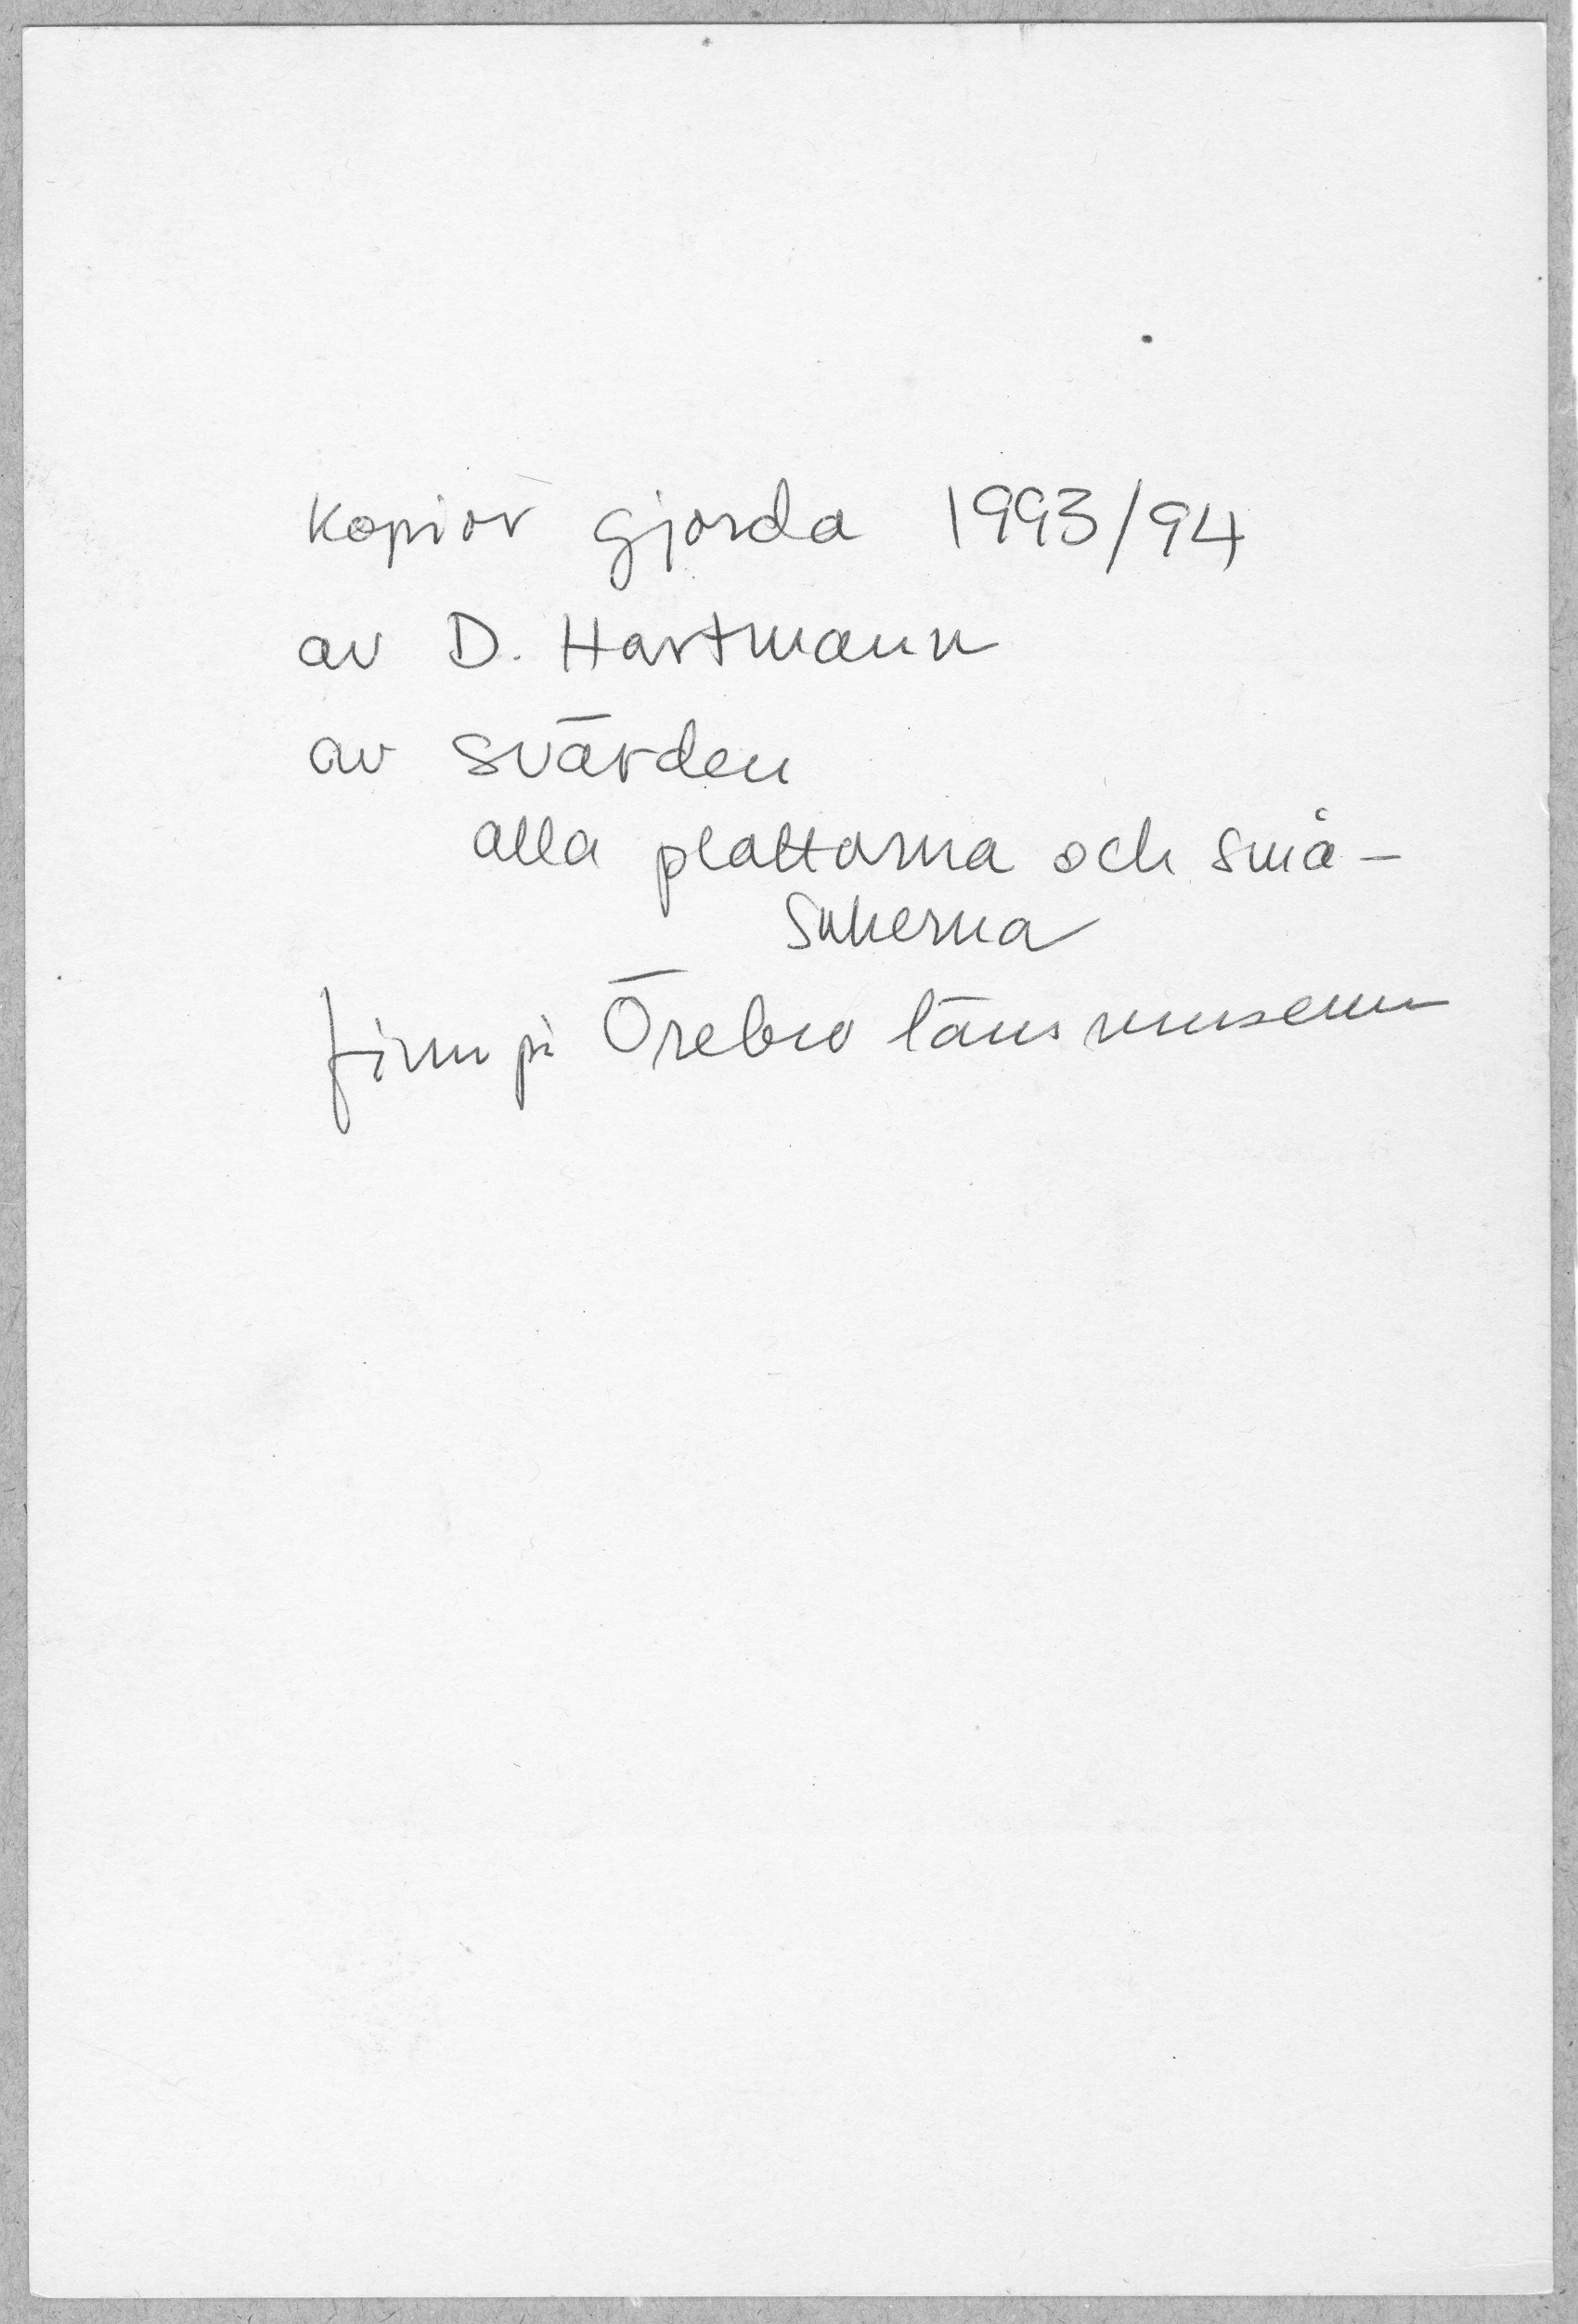 Kopior gjorda 1993/94
av D. Hartmann
av svärden
alla plattorna och små-
sakerna
finns på Örebro läns museum